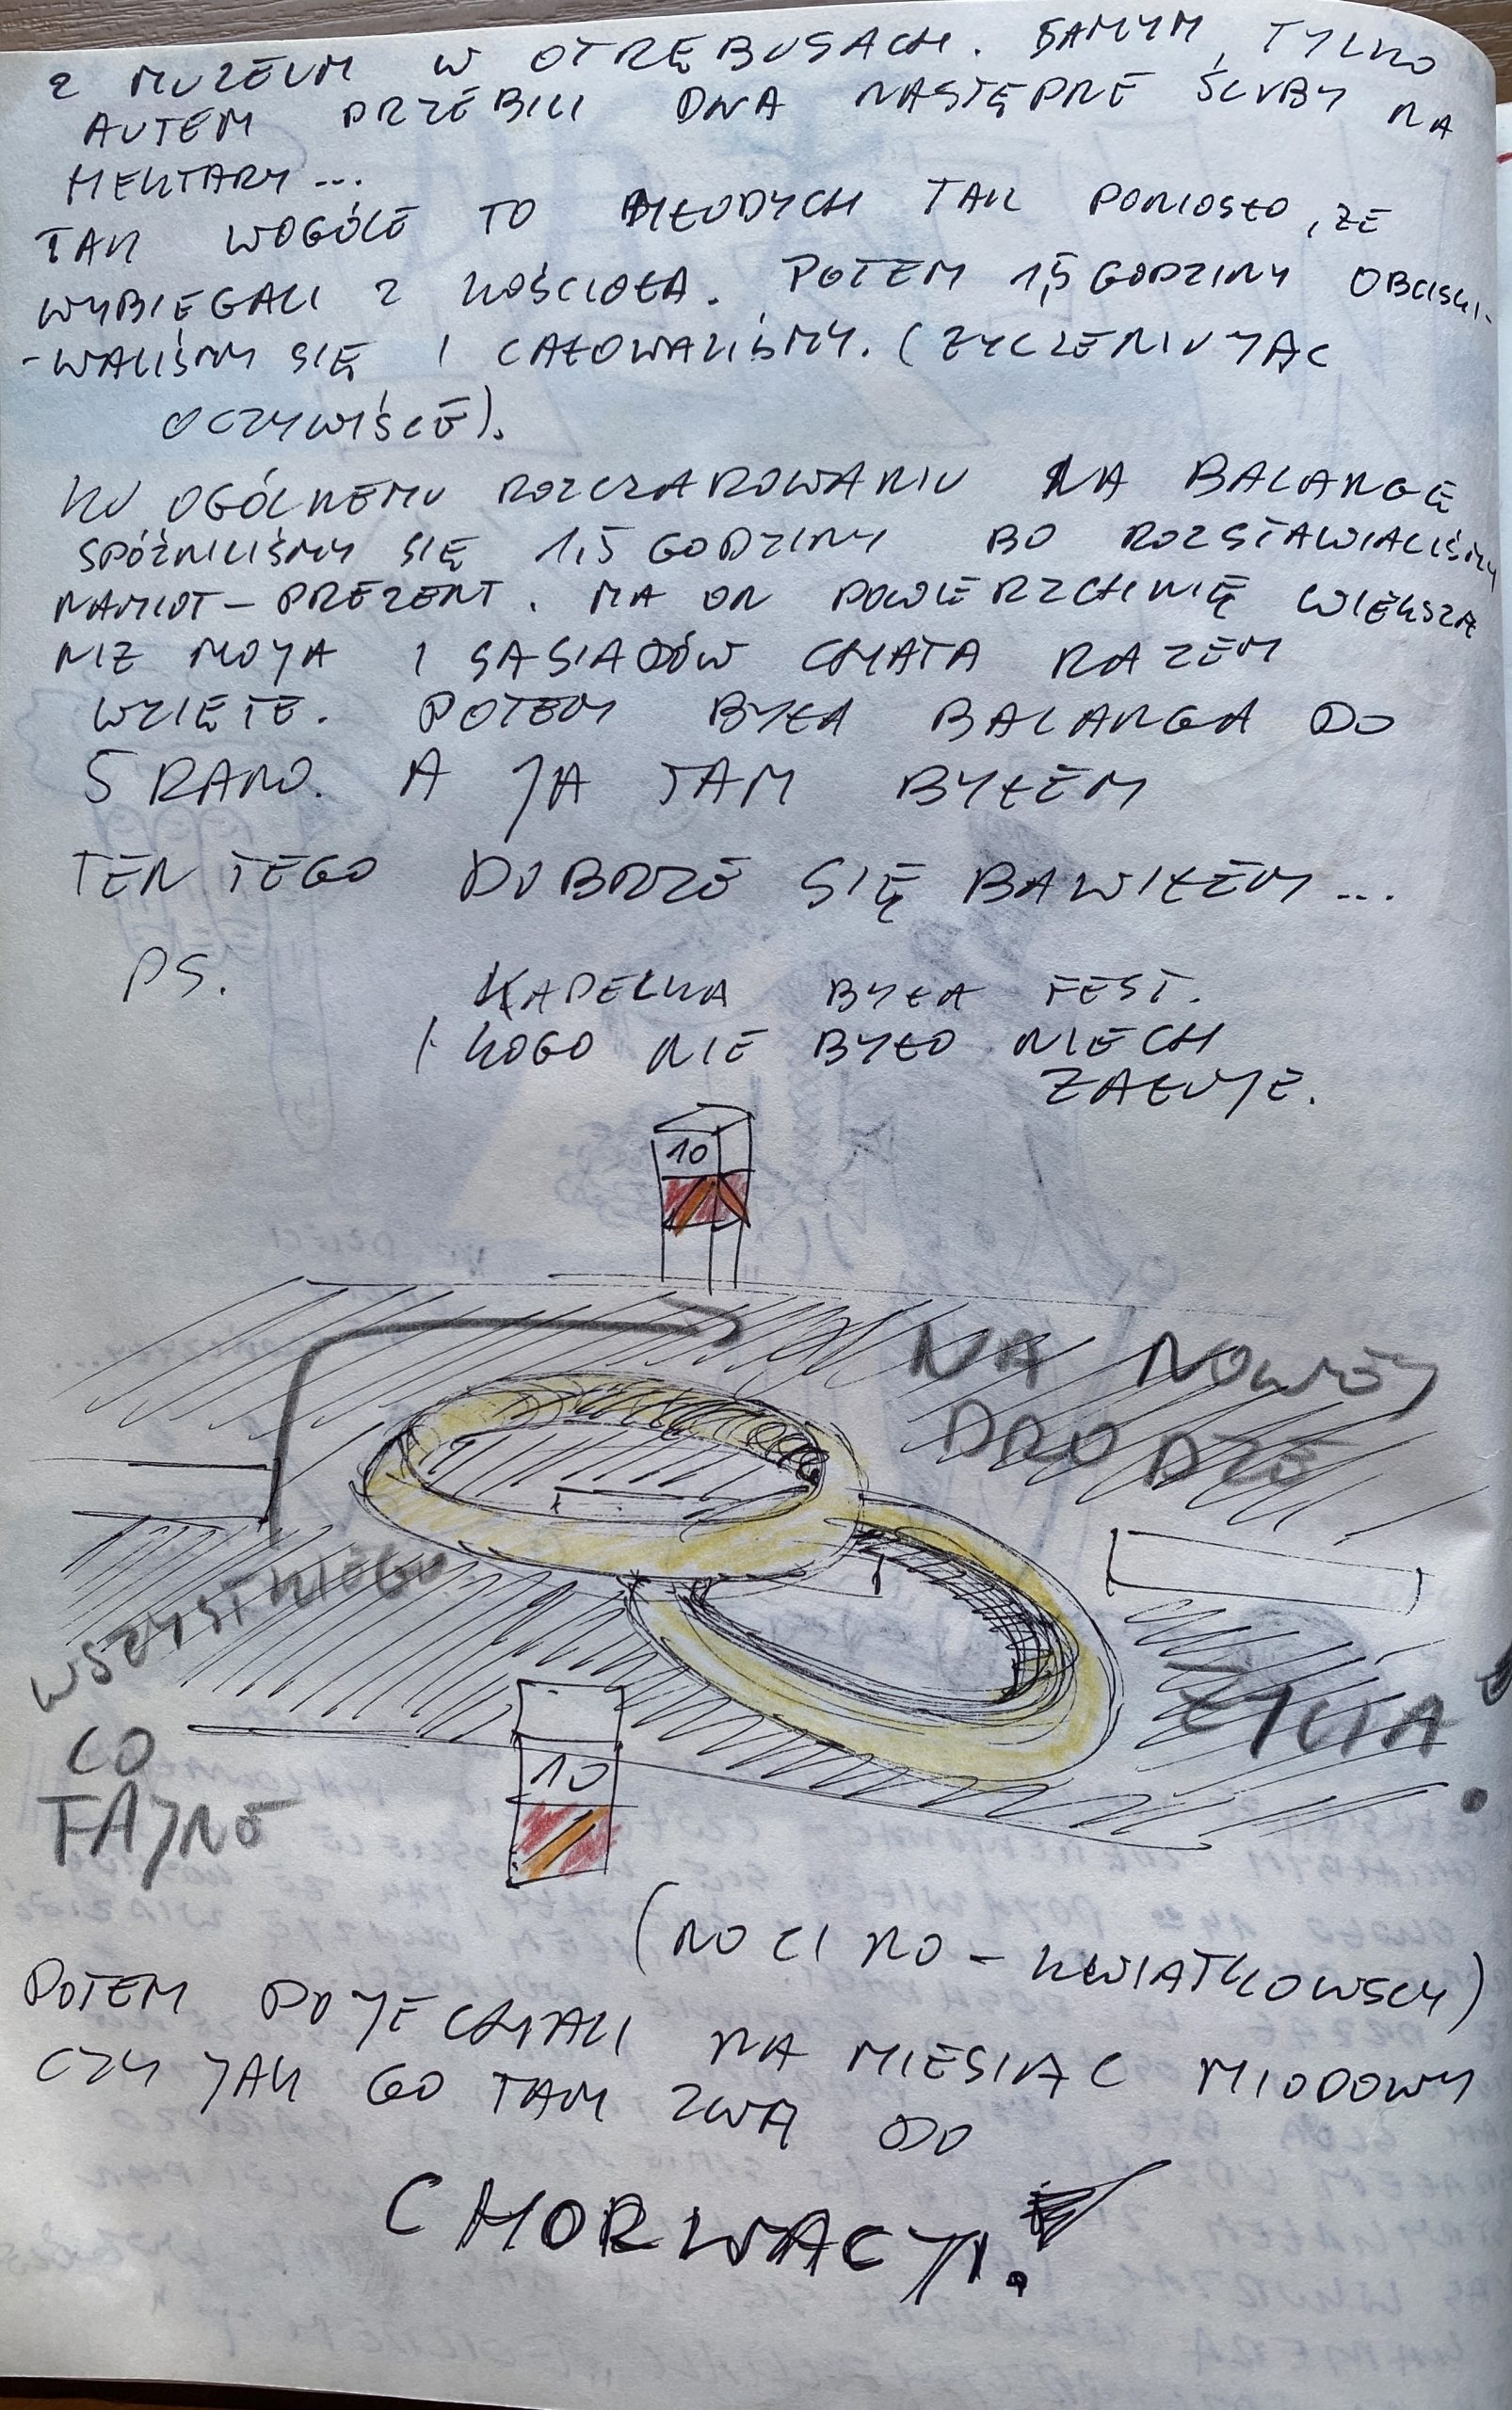 Z MUZEUM W OTRĘBUSACH. SAMYM, TYLKO
AUTEM PRZEBILI DWA NASTĘPNE ŚLUBY NA
HEKTARY...
TAK WOGÓLE TO MŁODYCH TAK PONIOSŁO, ŻE
WYBIEGALI Z KOŚCIOŁA. POTEM 1,5 GODZINY OBCISKI-
-WALIŚMY SIĘ I CAŁOWALIŚMY. (ŻYCZENIUJĄC
OCZYWIŚCE).
KU OGÓLNEMU ROZCZAROWANIU NA BALANGĘ
SPÓŹNILIŚMY SIĘ 1,5 GODZINY BO ROZSTAWIALIŚMY
NAMIOT - PREZENT. MA ON POWIERZCHNIĘ WIĘKSZĄ
NIZ MOJA I SĄSIADÓW CHATA RAZEM
WZIĘTE. POTEM BYŁA BALANGA DO
5 RANO. A JA TAM BYŁEM
TEN TEGO DOBRZE SIĘ BAWIŁEM...
PS. KAPELKA BYŁA FEST.
I KOGO NIE BYŁO NIECH
ŻAŁUJE.
10
WSZYSTKIEGO
CO
FAJNE
NA NOWEJ
DRODZE
ŻYCIA!
10
(NO CI NO - KWIATKOWSCY)
POTEM POJECHALI NA MIESIĄC MIODOWY
CZY JAK GO TAM ZWĄ DO
CHORWACJI!